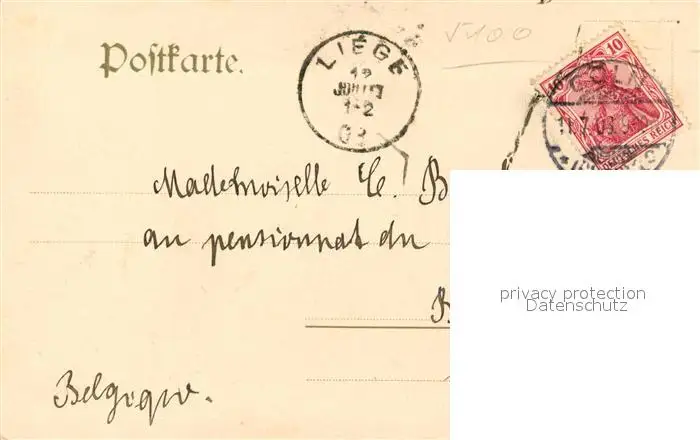 Postkarte.
LIÉGE
12
JUILLET
1-2
03
10
CÖLN
11.7.03.9-
DEUTSCHES REICH
Mademoiselle C. B
au pensionnat du
B
Belgique.
privacy protection
Datenschutz